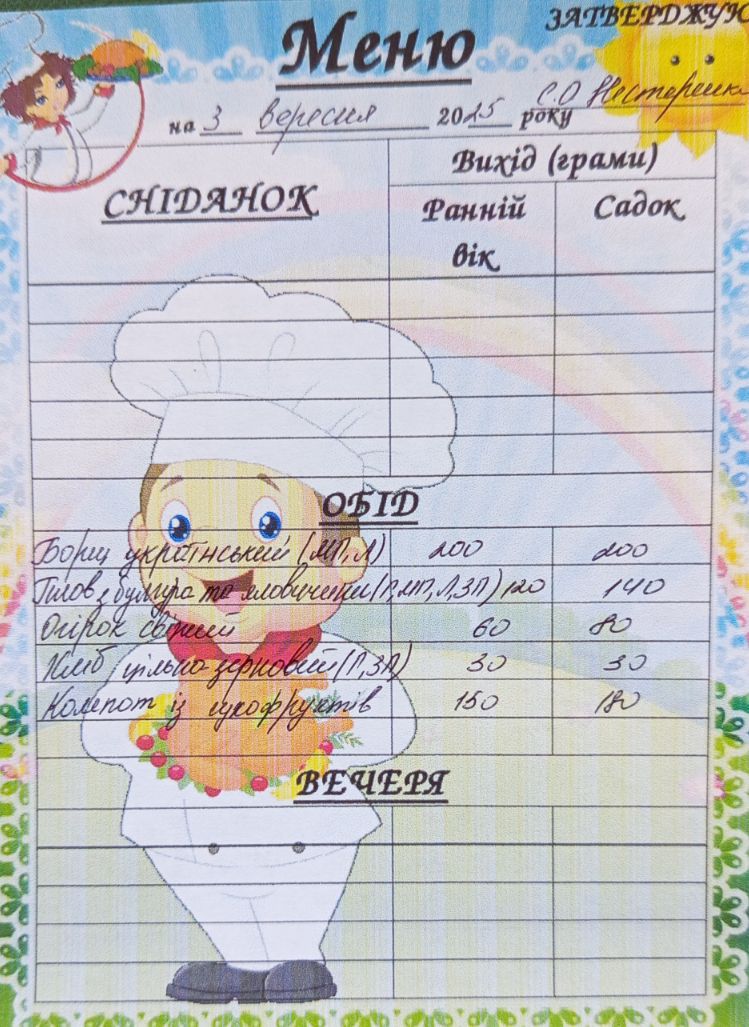 ЗАТВЕРДЖУЮ
Меню
С.О Нестеренко
на 3 вересня 2025 року
СНІДАНОК
Вихід (грами)
Ранній вік
Садок
ОБІД
Борщ український (МП, Л) 200 200
Плов з булгура та яловичини (Г, МП, Л, ЗП) 120 140
Огірок свіжий 60 80
Хліб цільно-зерновий (Г, ЗП) 30 30
Компот із сухофруктів 150 180
ВЕЧЕРЯ